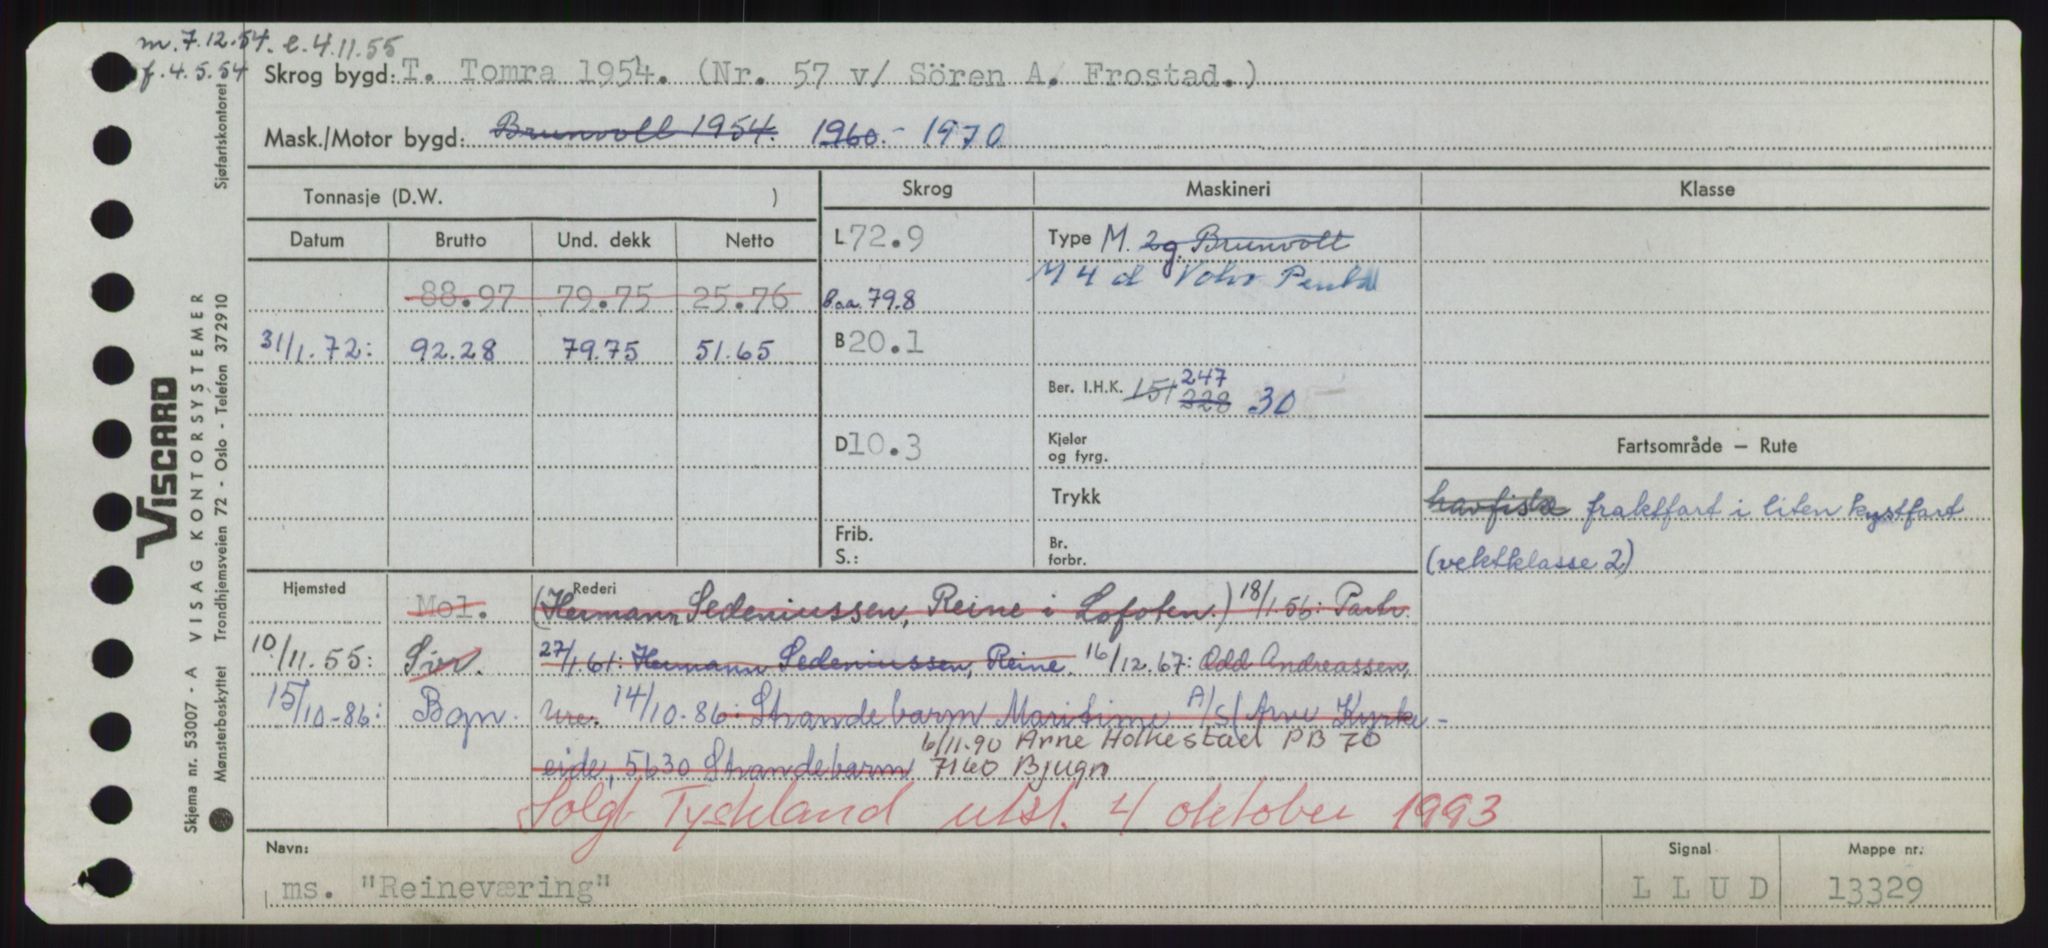 m. 7.12.54. e. 4.11.55
f. 4.5.54
Skrog bygd: T. Tomra 1954. (Nr. 57 v/ Sören A. Frostad.)
Mask./Motor bygd: Brunvoll 1954. 1960. - 1970
Sjøfartskontoret
Tonnasje (D.W. )
Skrog
Maskineri
Klasse
Datum Brutto Und. dekk Netto
L 72.9
Type M. 2g. Brunvoll
M 4 d Volvo Penta
88.97 79.75 25.76
Boa. 79.8
31/1.72: 92.28 79.75 51.65
B 20.1
Ber. I.H.K. 151 228 247 30
D 10.3
Kjeler
og fyrg.
Fartsområde – Rute
Trykk
havfiske fraktfart i liten kystfart
(vektklasse 2)
Frib.
S.:
Br.
forbr.
Hjemsted
Rederi
Mol. (Hermann Sedeniussen, Reine i Lofoten.) 18/1.56: Partr.
10/11.55: Svr. 27/1.61: Hermann Sedeniussen, Reine. 16/12.67: Odd Andreassen,
15/10-86: Bgn. Ure. 14/10-86: Strandebarm Maritime A/S/Arve Kyrke-
6/11.90 Arne Holkestad PB 70
eide, 5630 Strandebarm 7160 Bjugn
Solgt Tyskland utst. 4 oktober 1993
Navn:
ms. "Reineværing"
Signal
L L U D
Mappe nr.:
13329
VISCARD
VISAG KONTORSYSTEMER
Skjema nr. 53007 - A
Mønsterbeskyttet Trondhjemsveien 72 - Oslo - Telefon 372910